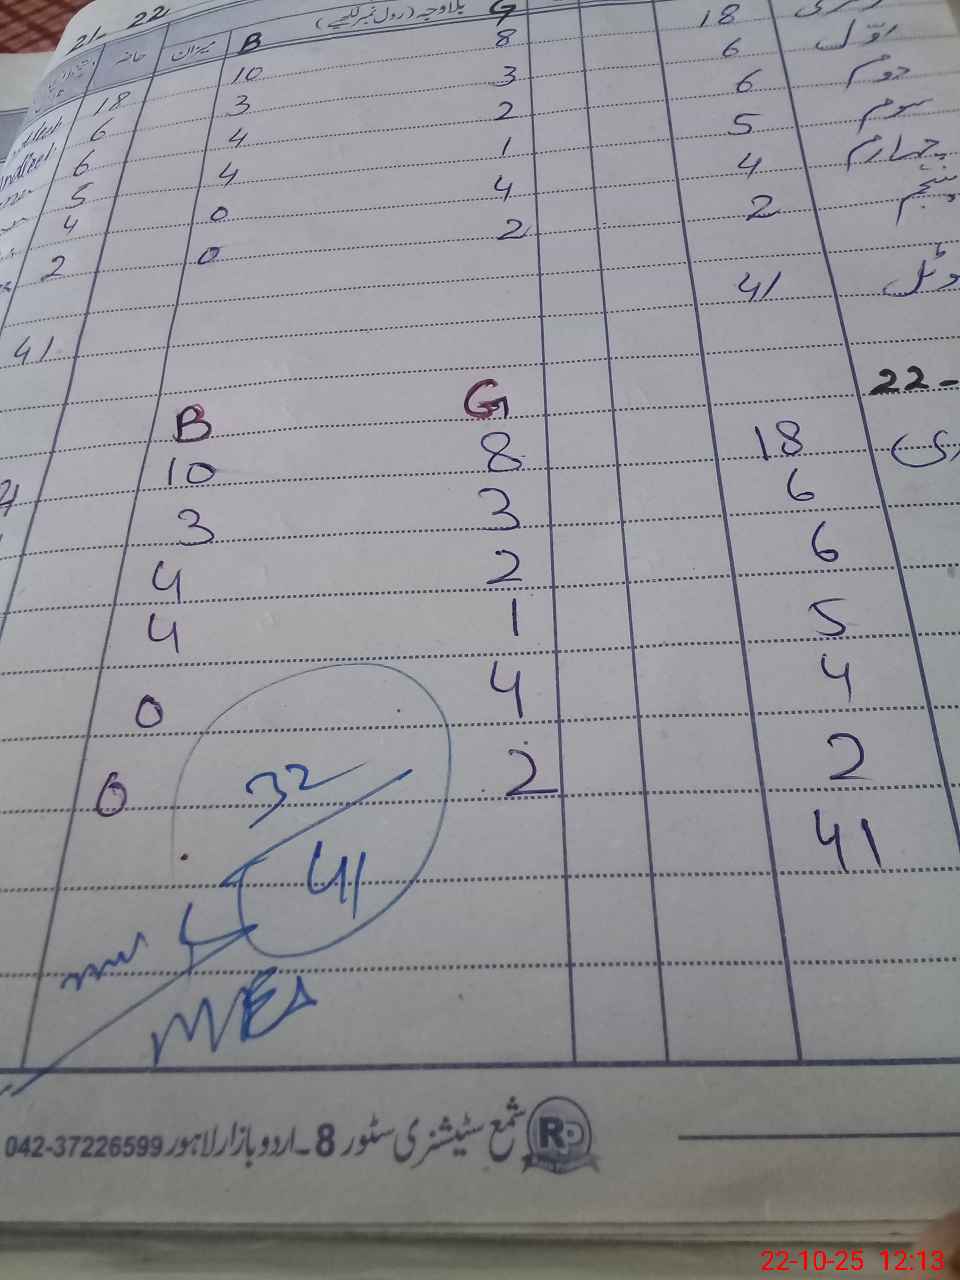 21-22
حاضر میزان B بلاوجہ (رول نمبر لکھیے) G
18 10 8 18
6 3 3 6 اوّل
6 4 2 6 دوم
5 4 1 5 سوم
4 0 4 4 چہارم
2 0 2 2 پنجم
41 41 ٹوٹل
22-
B G
10 8 18
3 3 6
4 2 6
4 1 5
0 4 4
0 2 2
32
41 41
MEA
شمع سٹیشنری سٹور 8۔اردو بازار لاہور 042-37226599
RP
22-10-25 12:13